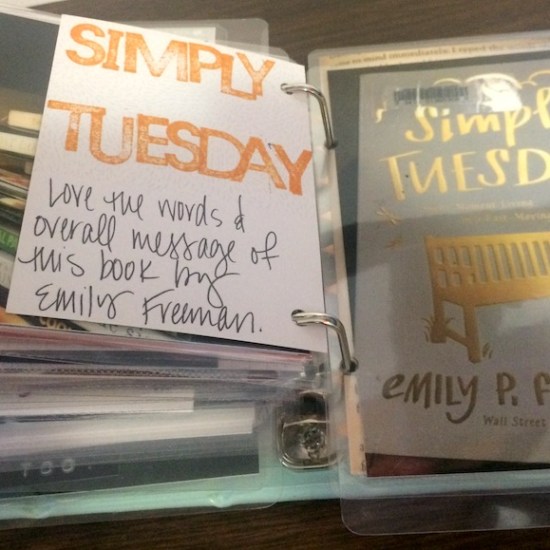 SIMPLY
TUESDAY
Love the words &
overall message of
this book by
Emily Freeman.
TOO.
Simpl
TUESD
EMILY P. F
Wall Street